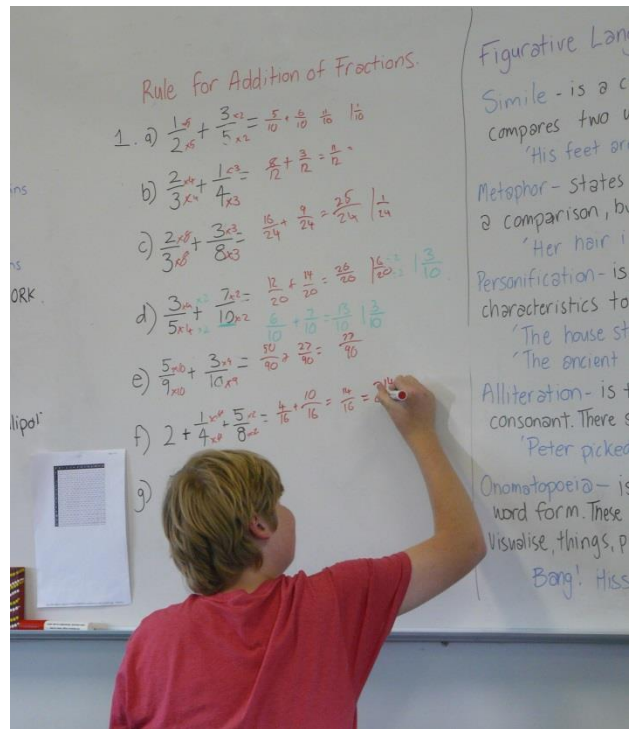 Rule for Addition of Fractions.
1. a) 1/2 ×5/×5 + 3/5 ×2/×2 = 5/10 + 6/10 11/10 1 1/10
b) 2/3 ×4/×4 + 1/4 ×3/×3 = 8/12 + 3/12 = 11/12 =
c) 2/3 ×8/×8 + 3/8 ×3/×3 = 16/24 + 9/24 = 25/24 1 1/24
d) 3/5 ×4/×4 ×2/×2 + 7/10 ×2/×2 = 12/20 + 14/20 = 26/20 1 6/20 ÷2/÷2 1 3/10
6/10 + 7/10 = 13/10 1 3/10
e) 5/9 ×10/×10 + 3/10 ×9/×9 = 50/90 + 27/90 = 77/90
f) 2 + 1/4 + 5/8 ×2/×2 = 4/16 + 10/16 = 14/16 = 2 14
g)
Figurative Lang
Simile - is a c
compares two
'His feet are
Metaphor - states
a comparison, bu
'Her hair i
Personification - is
characteristics to
'The house st
'The ancient
Alliteration - is
consonant. There s
'Peter picked
Onomatopoeia - is
word form. These
visualise, things, p
Bang! Hiss
ns
ns
ORK
llipoli